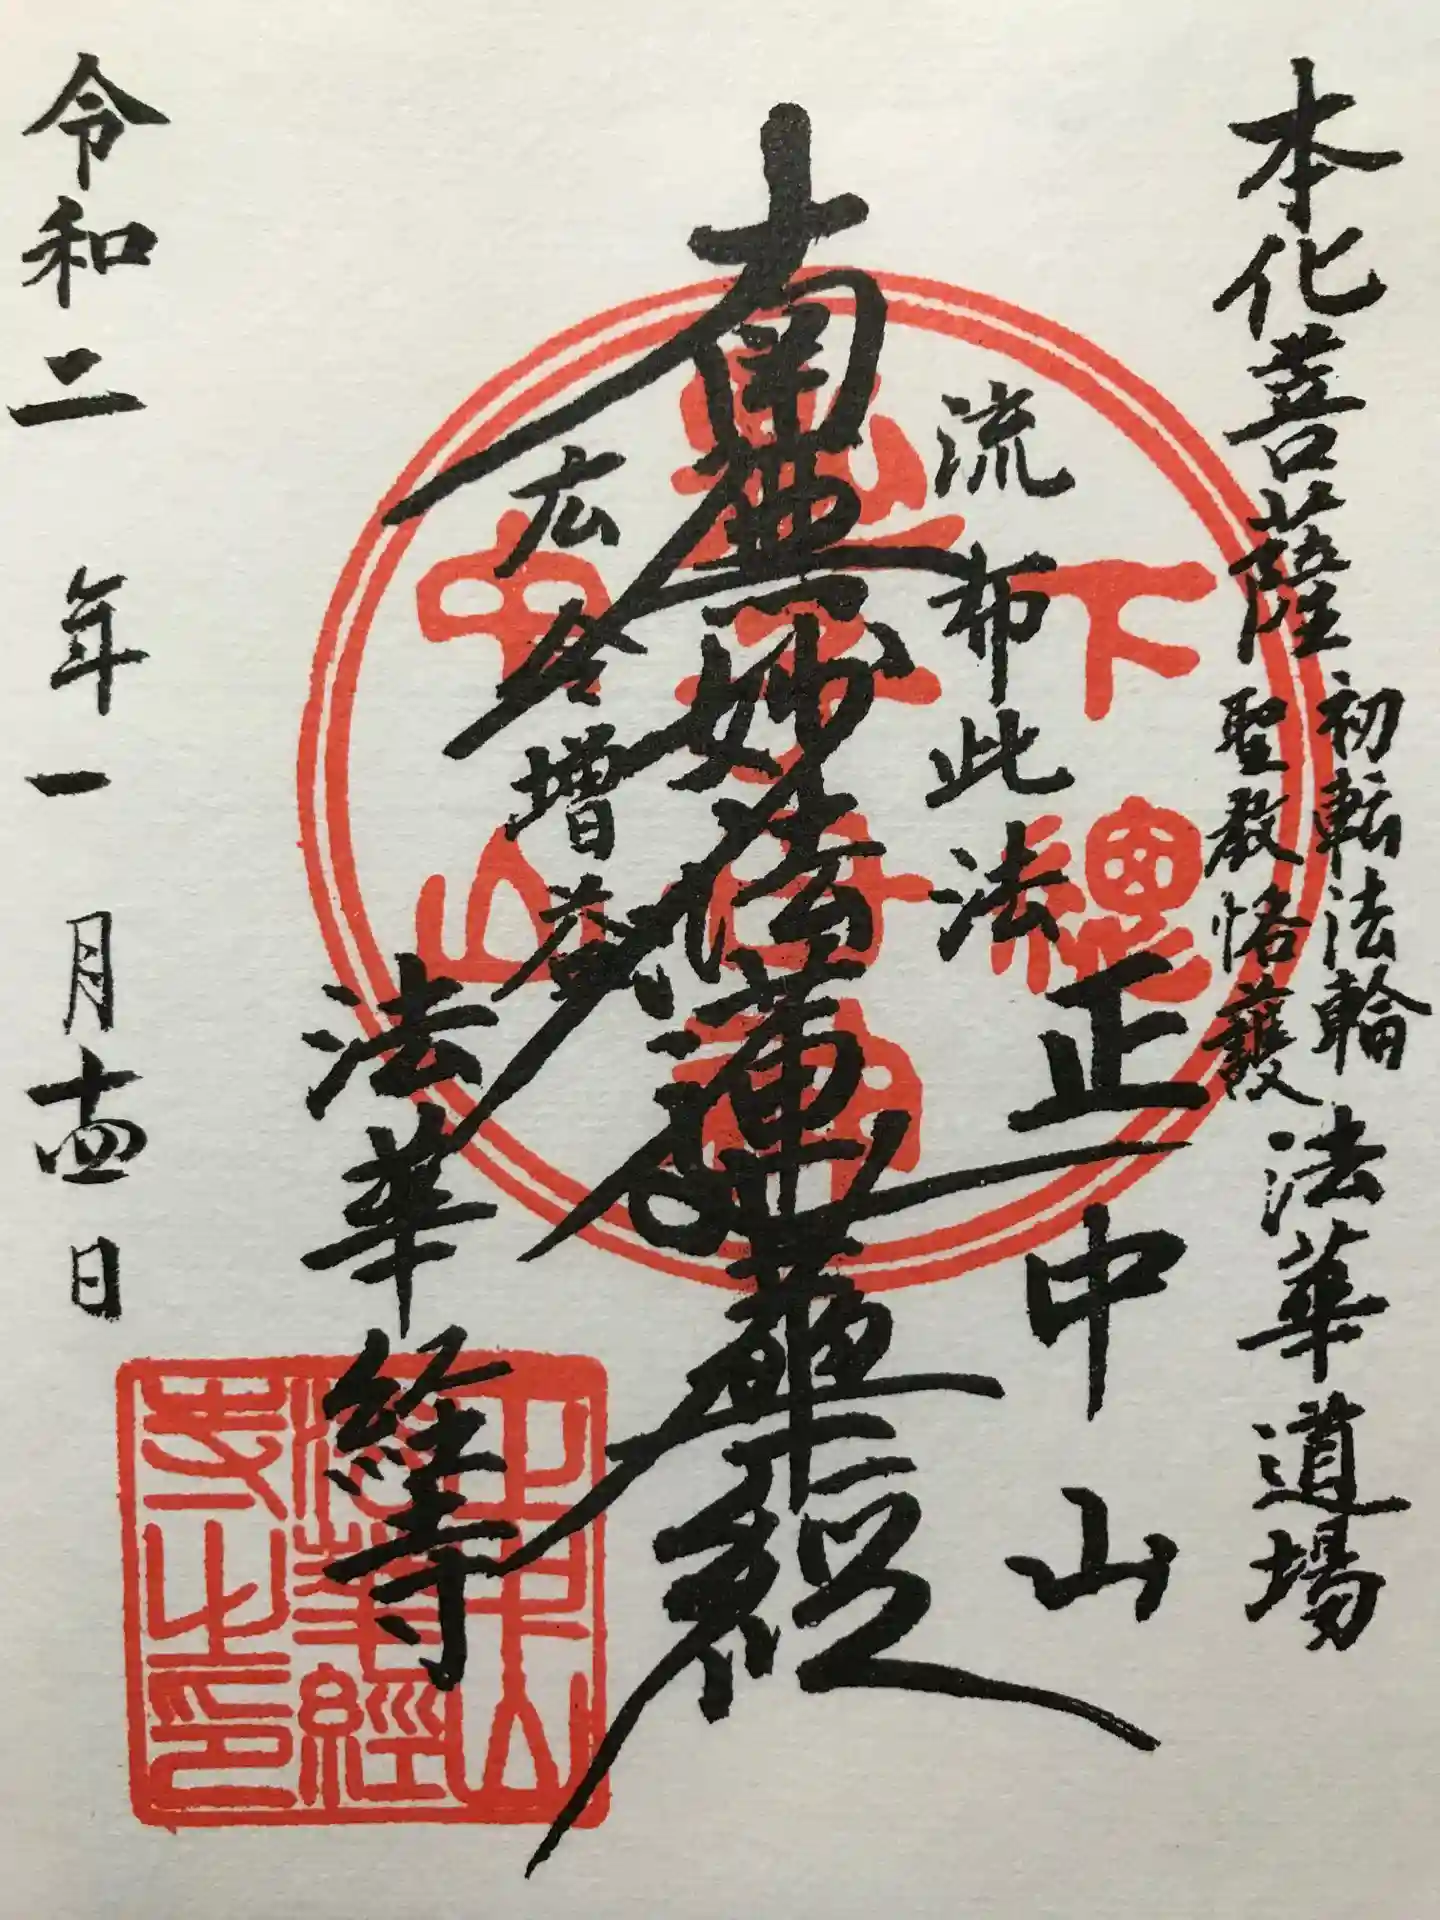 本化菩薩
初転法輪
聖教恪護
法華道場
流布此法
正中山
南無妙法蓮華経
広令増益
法華経寺
令和二年一月十四日
下總
中山
正中山
法華經
寺之印